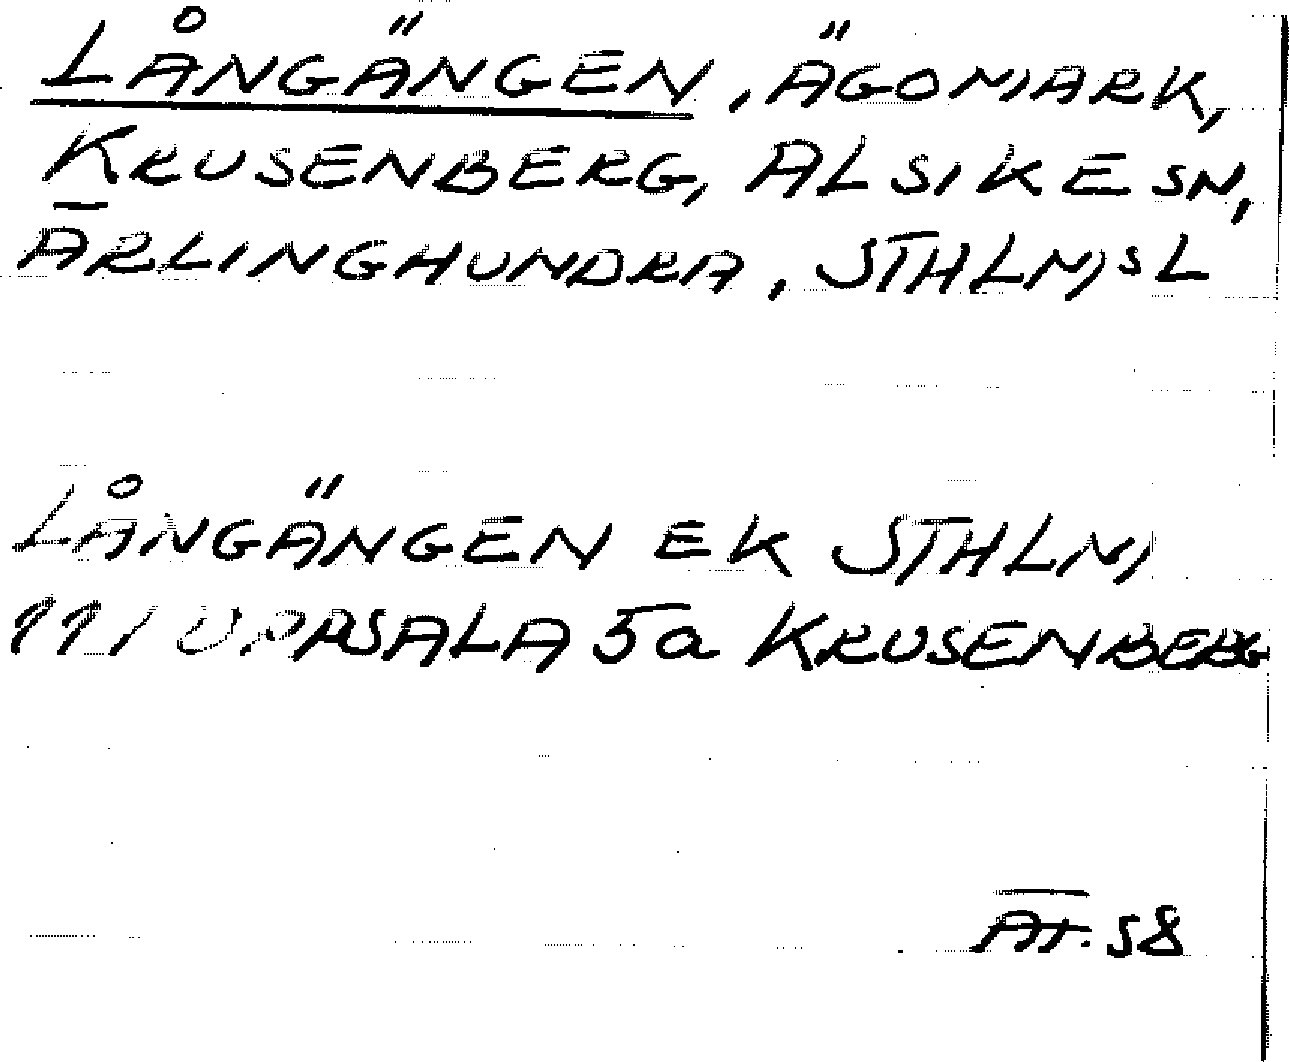 LÅNGÄNGEN, ÄGOMARK,
KRUSENBERG, ALSIKE SN,
ĀRLINGHUNDRA, STHLMSL
LÅNGÄNGEN EK STHLM
111 UPPSALA 5a KRUSENBERG
58